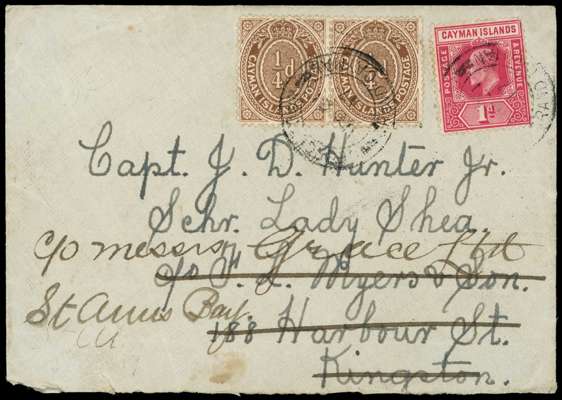 1/4d 1/4d
CAYMAN ISLANDS POSTAGE CAYMAN ISLANDS POSTAGE
CAYMAN ISLANDS
POSTAGE & REVENUE
1d
Capt. J. D. Hunter Jr.
Schr. Lady Shea.
c/o Messrs Grace Ltd
c/o F. L. Myers & Son.
St Anns Bay.
188 Harbour St.
Kingston.